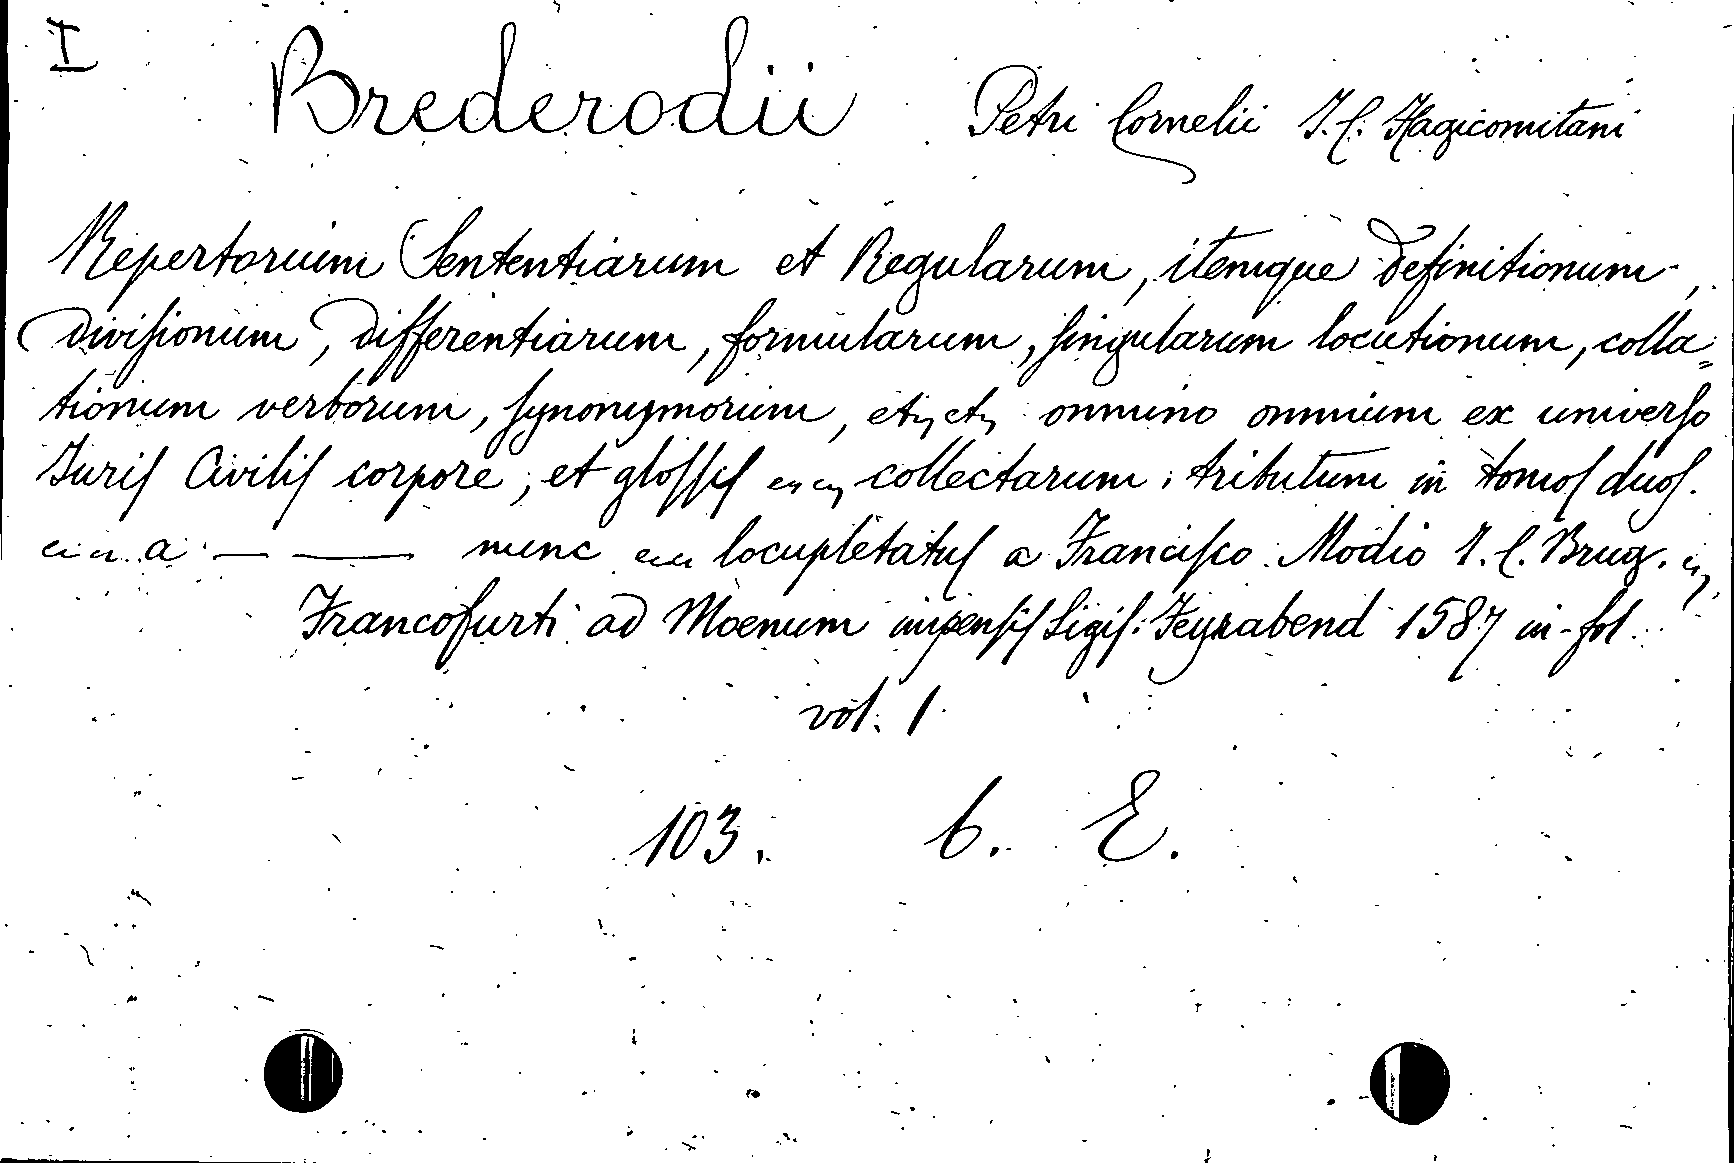 I
Brederodii Petri Cornelii J. C. Hagicomitani
Repertorium Sententiarum et Regularum, itemque Definitionum,
Divisionum, Differentiarum, formularum, singularum locutionum, colla=
tionum verborum, synonymorum, etc, etc, omnino omnium ex universo
Juris Civilis corpore, et glossis collectarum; tributum in tomos duos.
a — — nunc locupletatus a Francisco Modio J. C. Brug.
Francofurti ad Moenum impensis Sigis: Feyrabend 1587 in-fol.
vol. 1
103. 6. E.